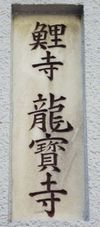 鯉寺
龍寶寺